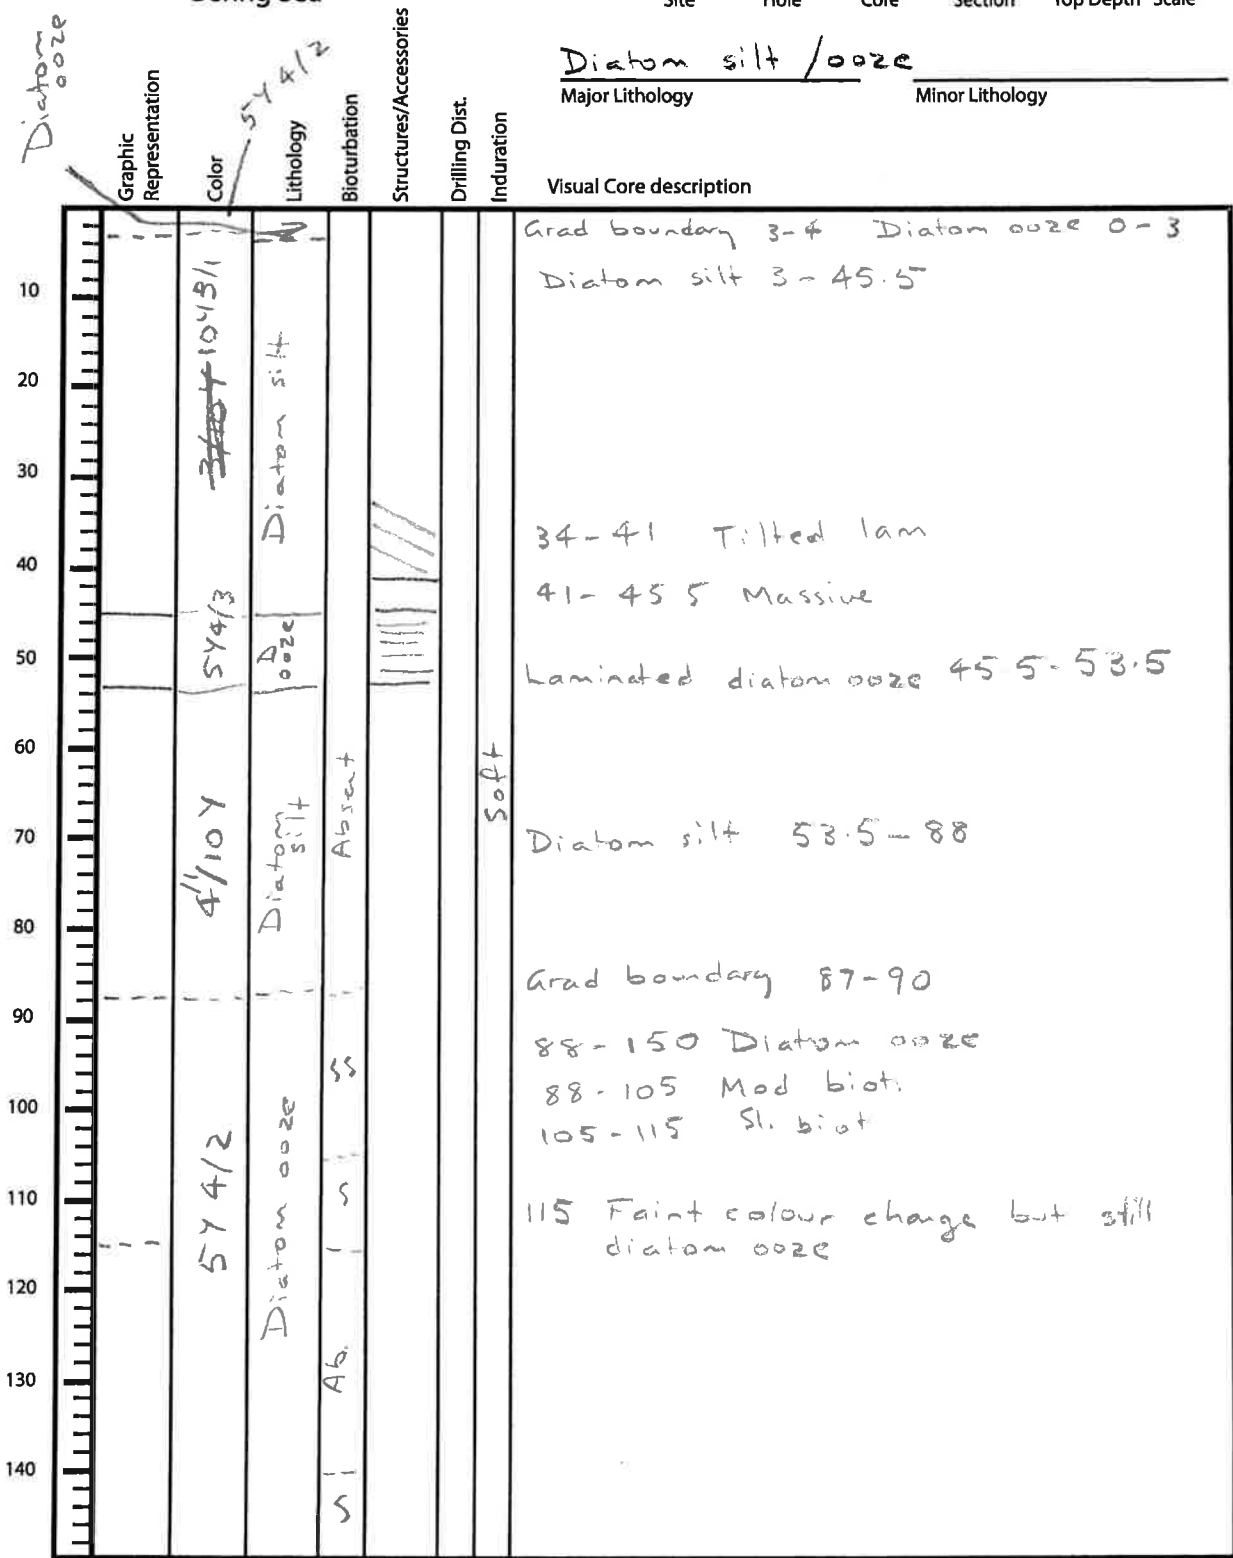 Bering Sea
Site Hole Core Section Top Depth Scale
Diatom silt / ooze
Major Lithology Minor Lithology
Diatom ooze
5Y 4/2
Graphic Representation
Color
Lithology
Bioturbation
Structures/Accessories
Drilling Dist.
Induration
Visual Core description
Grad boundary 3-4 Diatom ooze 0-3
Diatom silt 3-45.5
10
20
30
40
50
60
70
80
90
100
110
120
130
140
10Y 3/1
5Y4/3
4/10Y
5Y 4/2
Diatom silt
D ooze
Diatom silt
Diatom ooze
Absent
SS
S
Ab.
S
Soft
34-41 Tilted lam
41-45 5 Massive
Laminated diatom ooze 45 5-53.5
Diatom silt 53.5-88
Grad boundary 87-90
88-150 Diatom ooze
88-105 Mod biot.
105-115 Sl. biot
115 Faint colour change but still
diatom ooze